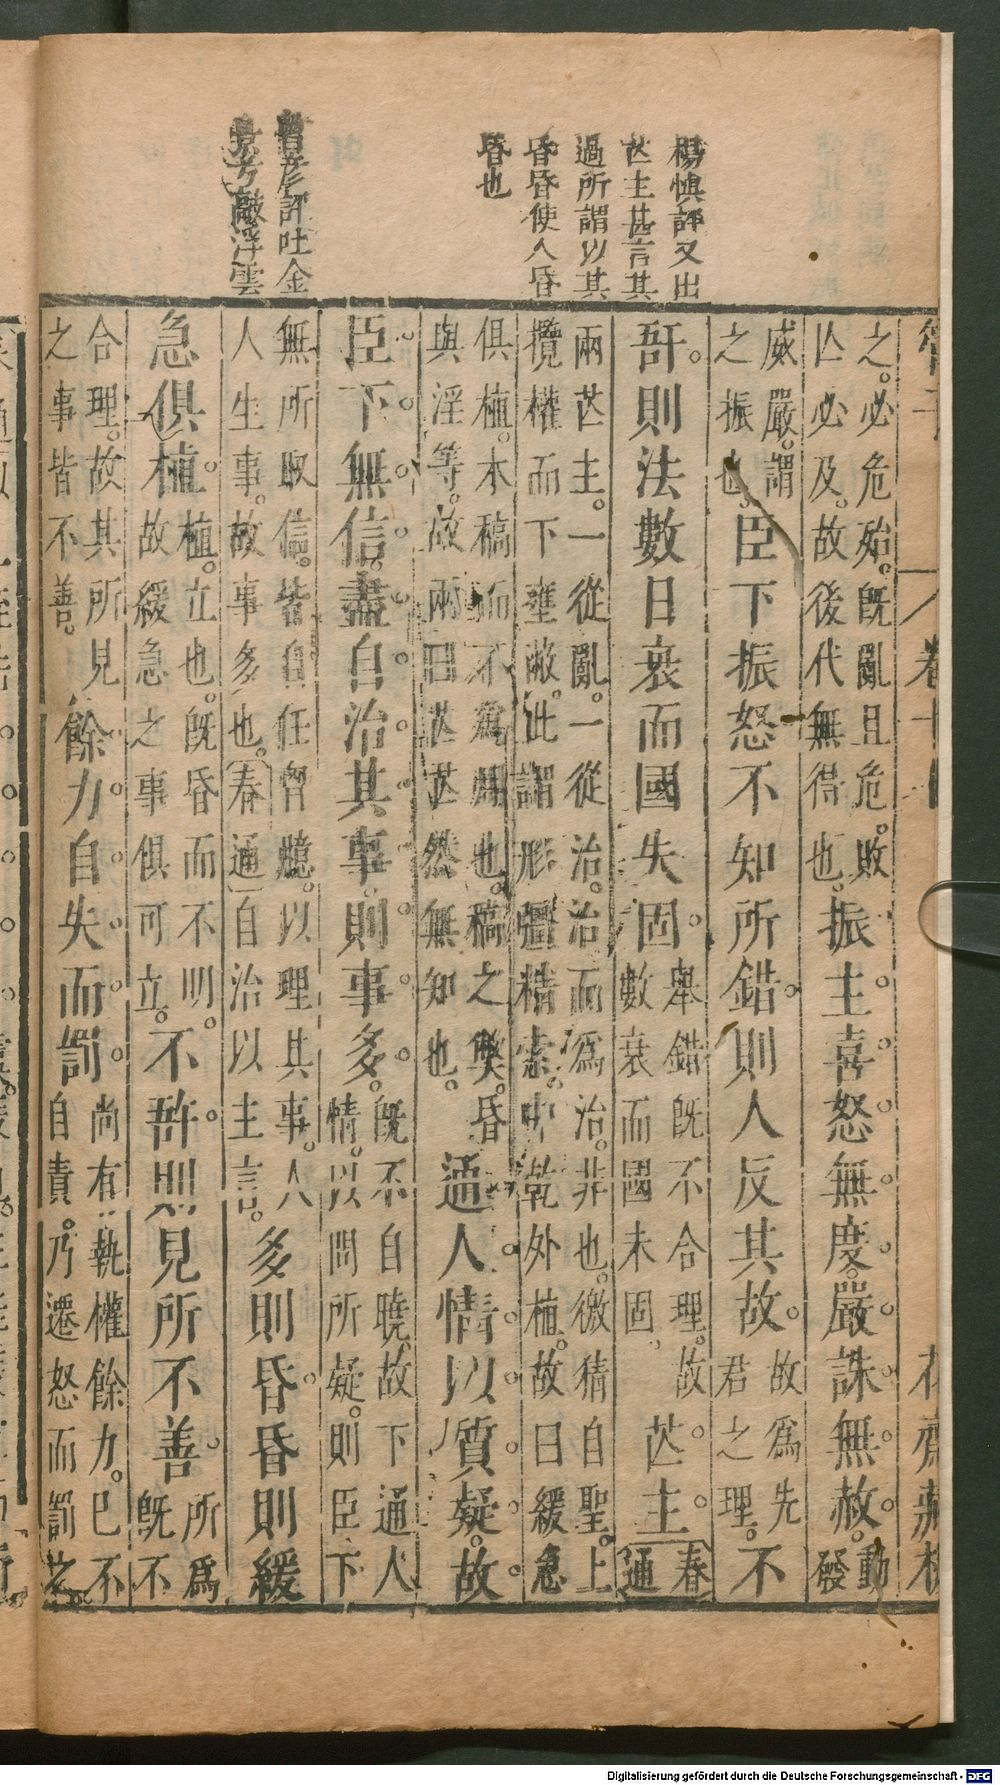 楊慎評又出
芒主甚言其
過所謂以其
昏昏使人昏
昏也
評吐金
敲浮雲
管子
卷十
花齋藏板
之。必危殆。旣亂且危。敗
亾必及。故後代無得也。
振主。喜怒無度。嚴誅無赦。
動發
威嚴。謂
之振也。
臣下振怒不知所錯。則人反其故。
故爲先
君之理。
不
䛩。則法數日衰而國失固。
舉錯旣不合理。故
數衰而國未固。
芒主。
春
通
兩芒主。一從亂。一從治。治而爲治。非也。徼猜自聖。上
攬權而下壅蔽。此謂形彊精索。中乾外植。故曰緩急
俱植。木稿而不爲用也。稿之斃。昏
與淫等。故兩曰芒芒然無知也。
通人情以質疑。故
臣下無信。盡自治其事。則事多。
旣不自曉。故下通人
情。以問所疑。則臣下
無所取信。皆自任胷臆。以理其事。人
人生事。故事多也。春通自治以主言。
多則昏。昏則緩
急俱植。
植。立也。旣昏而不明。
故緩急之事俱可立。
不䛩。則見所不善。
所爲
旣不
合理。故其所見
之事皆不善。
餘力自失而罰。
尚有執權餘力。已不
自責。乃遷怒而罰之。
Digitalisierung gefördert durch die Deutsche Forschungsgemeinschaft - DFG